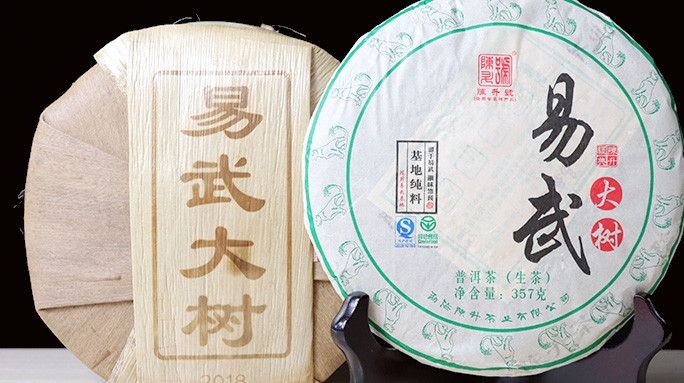 易武大树
2018
陳升號
易武
大树
基地纯料
普洱茶（生茶）
净含量：357克
勐海陈升茶业有限公司